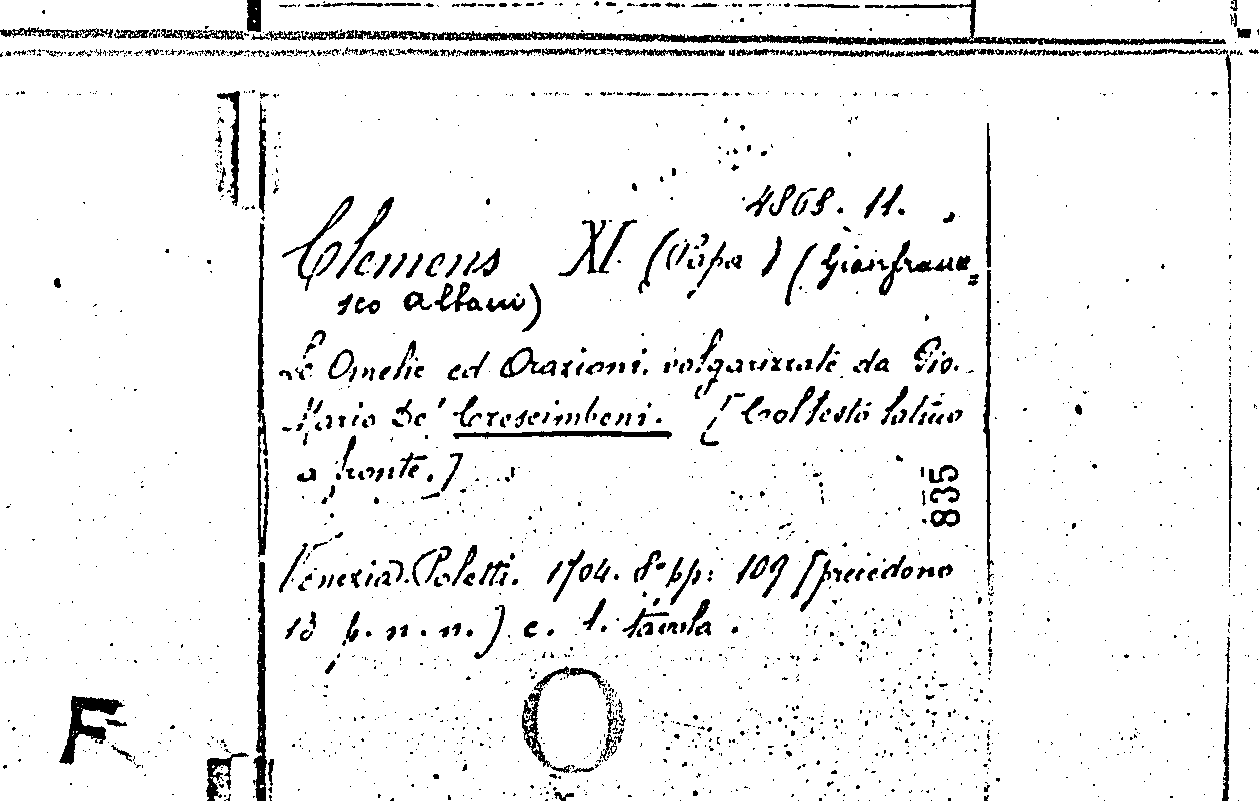 4868. 11.
Clemens XI. (Papa) (Gianfrance=
sco Albani)
Le Omelie ed Orazioni. volgarizzate da Gio.
Mario De' Crescimbeni. [Col testo latino
a fronte.]
835
Venezia. Poletti. 1704. 8° pp. 109 [precedono
13 p. n. n.] c. 1. tavola.
O
F